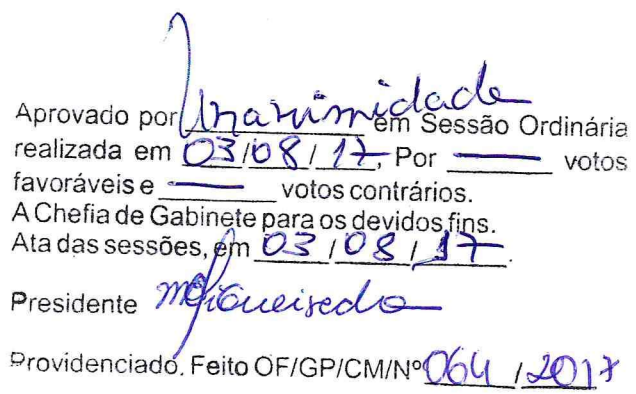 Aprovado por Unanimidade em Sessão Ordinária
realizada em 03/08/17, Por — votos
favoráveis e — votos contrários.
A Chefia de Gabinete para os devidos fins.
Ata das sessões, em 03/08/17.
Presidente
Providenciado, Feito OF/GP/CM/Nº 064/2017